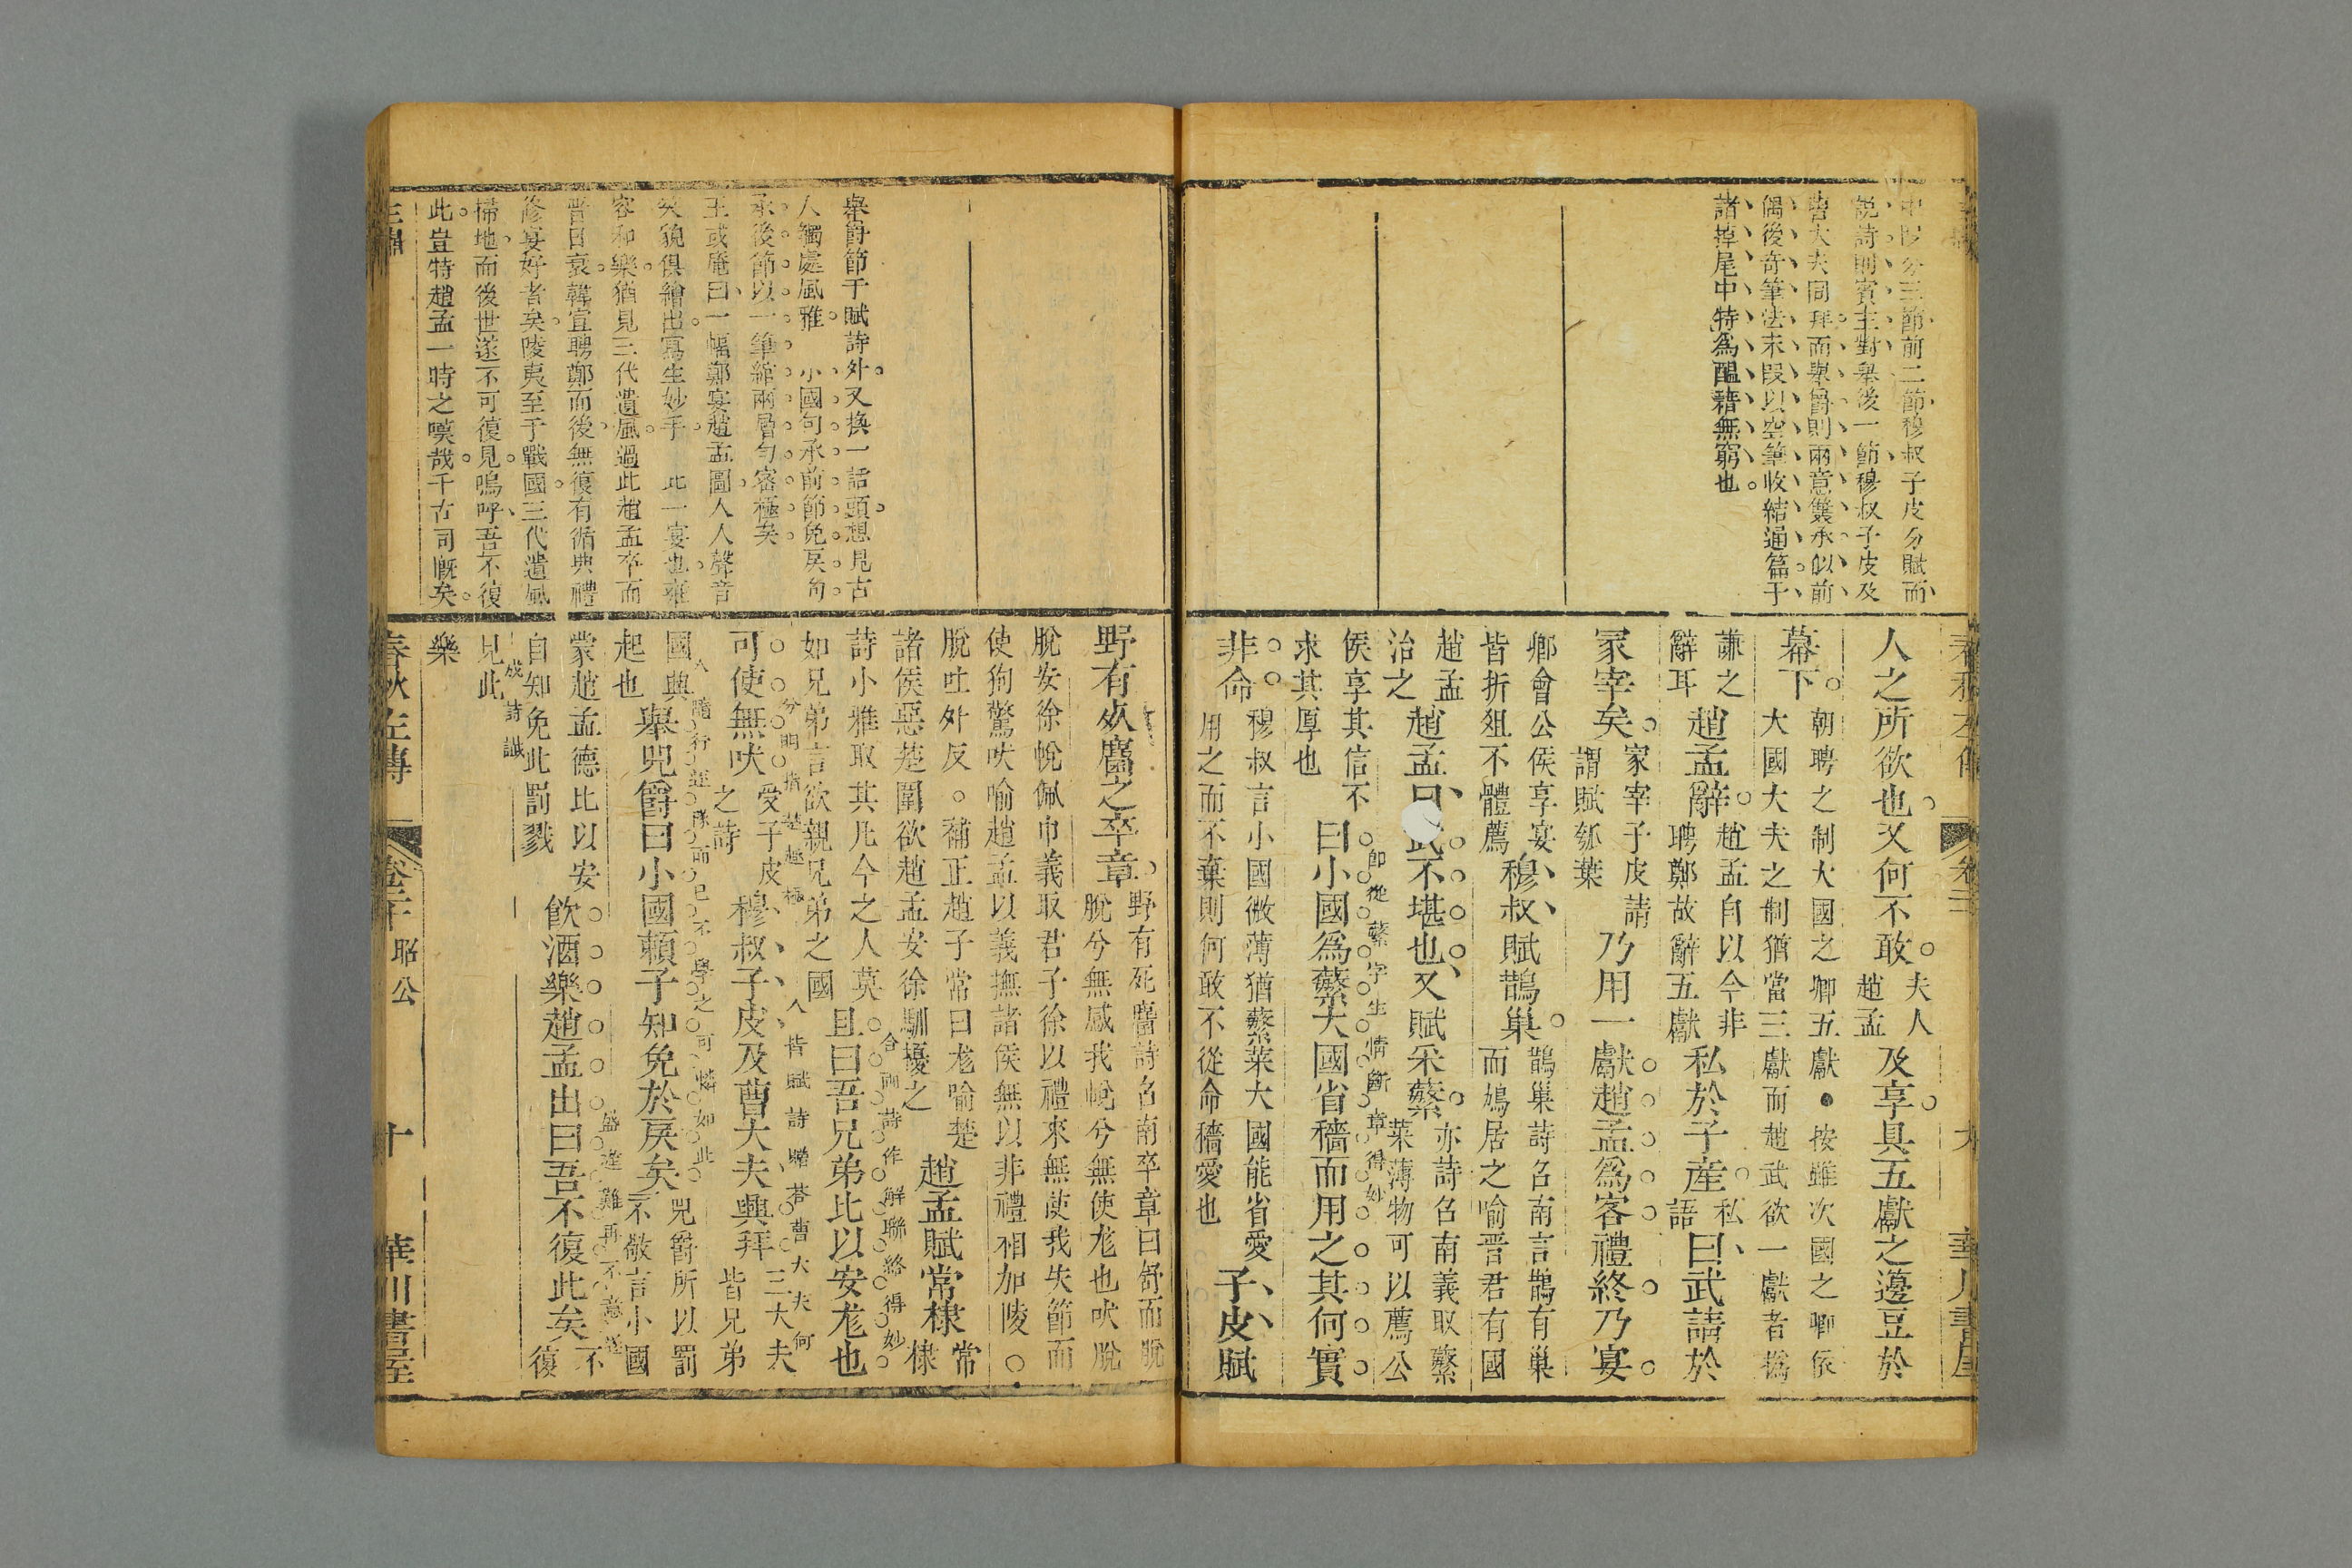 中段分三節前二節穆叔子皮分賦而
説詩則賓主對舉後一節穆叔子皮及
曹大夫同拜而舉爵則兩意雙承似前
偶後奇筆法末段以空筆收結通篇于
諸掉尾中特爲醞藉無窮也
人之所欲也又何不敢夫人趙孟及享具五獻之籩豆於
幕下朝聘之制大國之卿五獻●按雖次國之卿依大國大夫之制猶當三獻而趙武欲一獻者爲
謙之辭耳趙孟辭趙孟自以今非聘鄭故辭五獻私於子産私語曰武請於
冢宰矣冢宰子皮請謂賦瓠葉乃用一獻趙孟爲客禮終乃宴
卿會公侯享宴皆折俎不體薦穆叔賦鵲巢鵲巢詩召南言鵲有巢而鳩居之喻晋君有國
趙孟治之趙孟曰武不堪也又賦采蘩亦詩召南義取蘩菜薄物可以薦公
侯享其信不求其厚也曰小國爲蘩大國省穡而用之其何實
即從蘩字生情斷章得妙
非命穆叔言小國微薄猶蘩菜大國能省愛用之而不棄則何敢不從命穡愛也子皮賦
華川書屋
舉爵節于賦詩外又換一話頭想見古
人獨處風雅 小國句承前節免戾句
承後節以一筆綰兩層勻密極矣
王或庵曰一幅鄭宴趙孟圖人人聲音
笑貌俱繪出寫生妙手 此一宴也雍
容和樂猶見三代遺風過此趙孟卒而
晋日衰韓宣聘鄭而後無復有循典禮
修宴好者矣陵夷至于戰國三代遺風
掃地而後世遂不可復見嗚呼吾不復
此豈特趙孟一時之嘆哉千古同慨矣
野有死麕之卒章野有死麕詩召南卒章曰舒而脫脫兮無感我帨兮無使尨也吠脫
脫安徐帨佩巾義取君子徐以禮來無使我失節而
使狗驚吠喻趙孟以義撫諸侯無以非禮相加陵○
脫吐外反○補正趙子常曰尨喻楚諸侯惡楚圍欲趙孟安徐馴擾之趙孟賦常棣常棣
詩小雅取其凡今之人莫如兄弟言欲親兄弟之國且曰吾兄弟比以安尨也
合兩詩作解聯絡得妙
可使無吠受子皮之詩穆叔子皮及曹大夫興拜三大夫皆兄弟
分明指楚
國興起也舉兕爵曰小國賴子知免於戾矣兕爵所以罰不敬言小國
蒙趙孟德比以安自知免此罰戮飲酒樂趙孟出曰吾不復此矣不復
見此
成詩讖
樂
春秋左傳
昭公
十
華川書屋